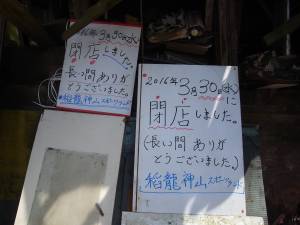 2016年3月30日(水)
閉店しました。
長い間ありが
とうございました。
稲龍神山スポーツランド
2016年3月30日(水)に
閉店しました。
(長い間ありが
とうございました。)
稲龍神山スポーツランド